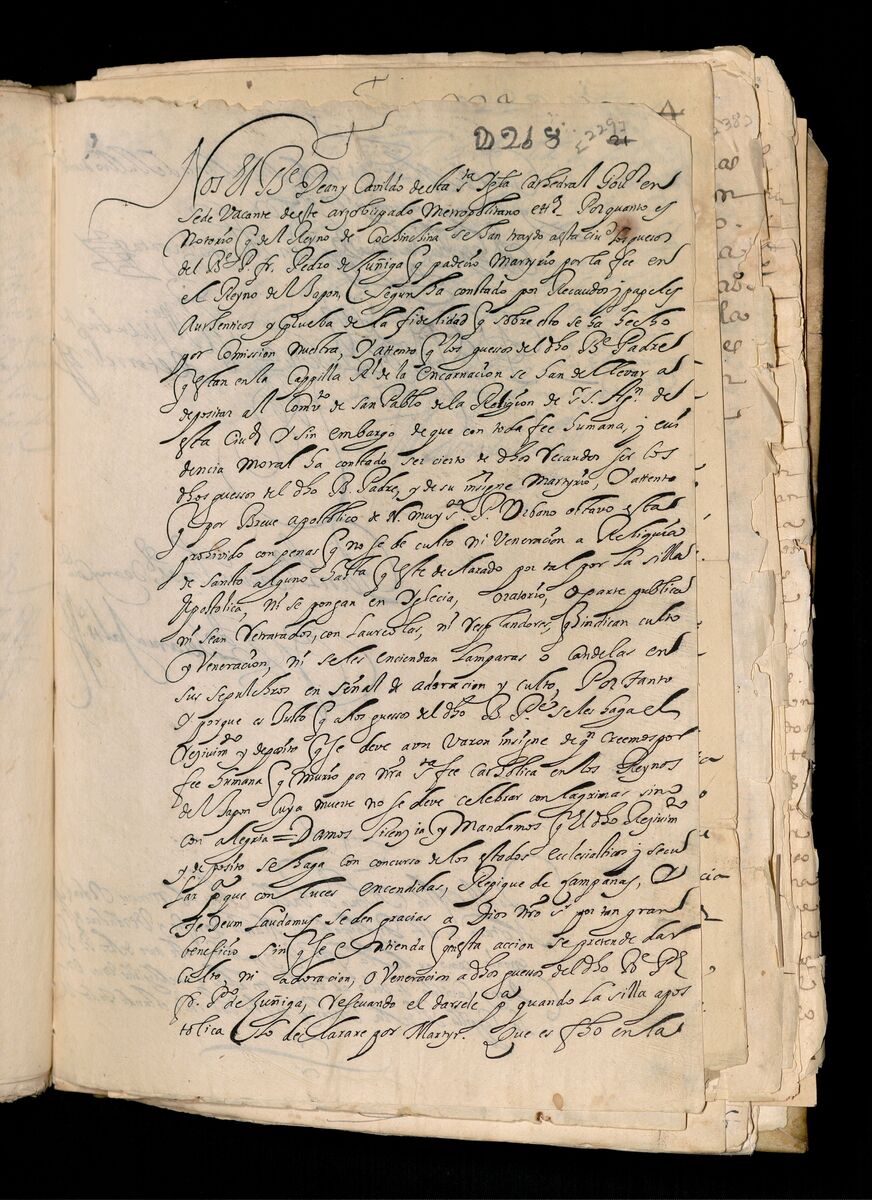 D268
2297
21
Nos El Be Dean y Cavildo desta sta Ygla Cathedral Gour en
Sede Vacante deste arçobispado Metropolitano etta. Por quanto es
Notorio q del Reyno de Cochinchina se han traydo a esta ciud los guesos
del Be P. fr. Pedro de Zuñiga q padecio Martyrio por la fee en
el Reyno del Japon, segun ha constado por Recaudos y papeles
Authenticos y prueba de la fidelidad q sobre esto se ha hecho
por Comission nuestra, Y attento q los guesos del dho Be Padre
q estan en la Cappilla Rl de la Encarnacion se han de llevar a
depositar al Comto de San Pablo de la Religion de S. Agn de
esta Ciud Y sin embargo de que con toda fee humana, y evi
dencia moral ha constado ser cierto de dhos Recaudos ser los
dhos guesos del dho B. Padre, y de su insigne Martyrio, Y attento
q por Breve apostolico de N. muy S. P. Urbano octavo esta
prohivido con penas q no se de culto ni Veneracion a Reliquia
de Sancto alguno hasta q este declarado por tal por la silla
Apostolica, Ni se pongan en Yglecia, oratorio, o parte publica
ni sean Retratados, con Laureolas, ni Resplandores, q indican culto
y Veneracion, ni se les enciendan Lamparas o candelas en
sus sepulchros en señal de adoracion y culto, Por tanto
Y porque es Justo q a los guesos del dho B. Pe se les haga el
Reçivimdo y deposito q se deve a un Varon insigne de qn creemos por
fee humana q murio por nra sta fee catholica en los Reynos
del Japon cuya muerte no se deve celebrar con lagrimas sino
con alegria = Damos licençia y Mandamos q El dho Reçivimto
y deposito se haga con concurso de los estados ecclesiastico y secu
lar pa que con luces encendidas, Repique de campanas, Y
Te Deum Laudamus se den gracias a Dios nro sr por tan gran
beneficio sin q se entienda q en esta accion se pretende dar
culto, ni adoracion, o Veneracion a dhos guesos del dho Be Pe
fr. Po de Zuñiga, Reservando el darsele pa quando la silla apos
tolica lo declarare por Martyr. Que es fho en la